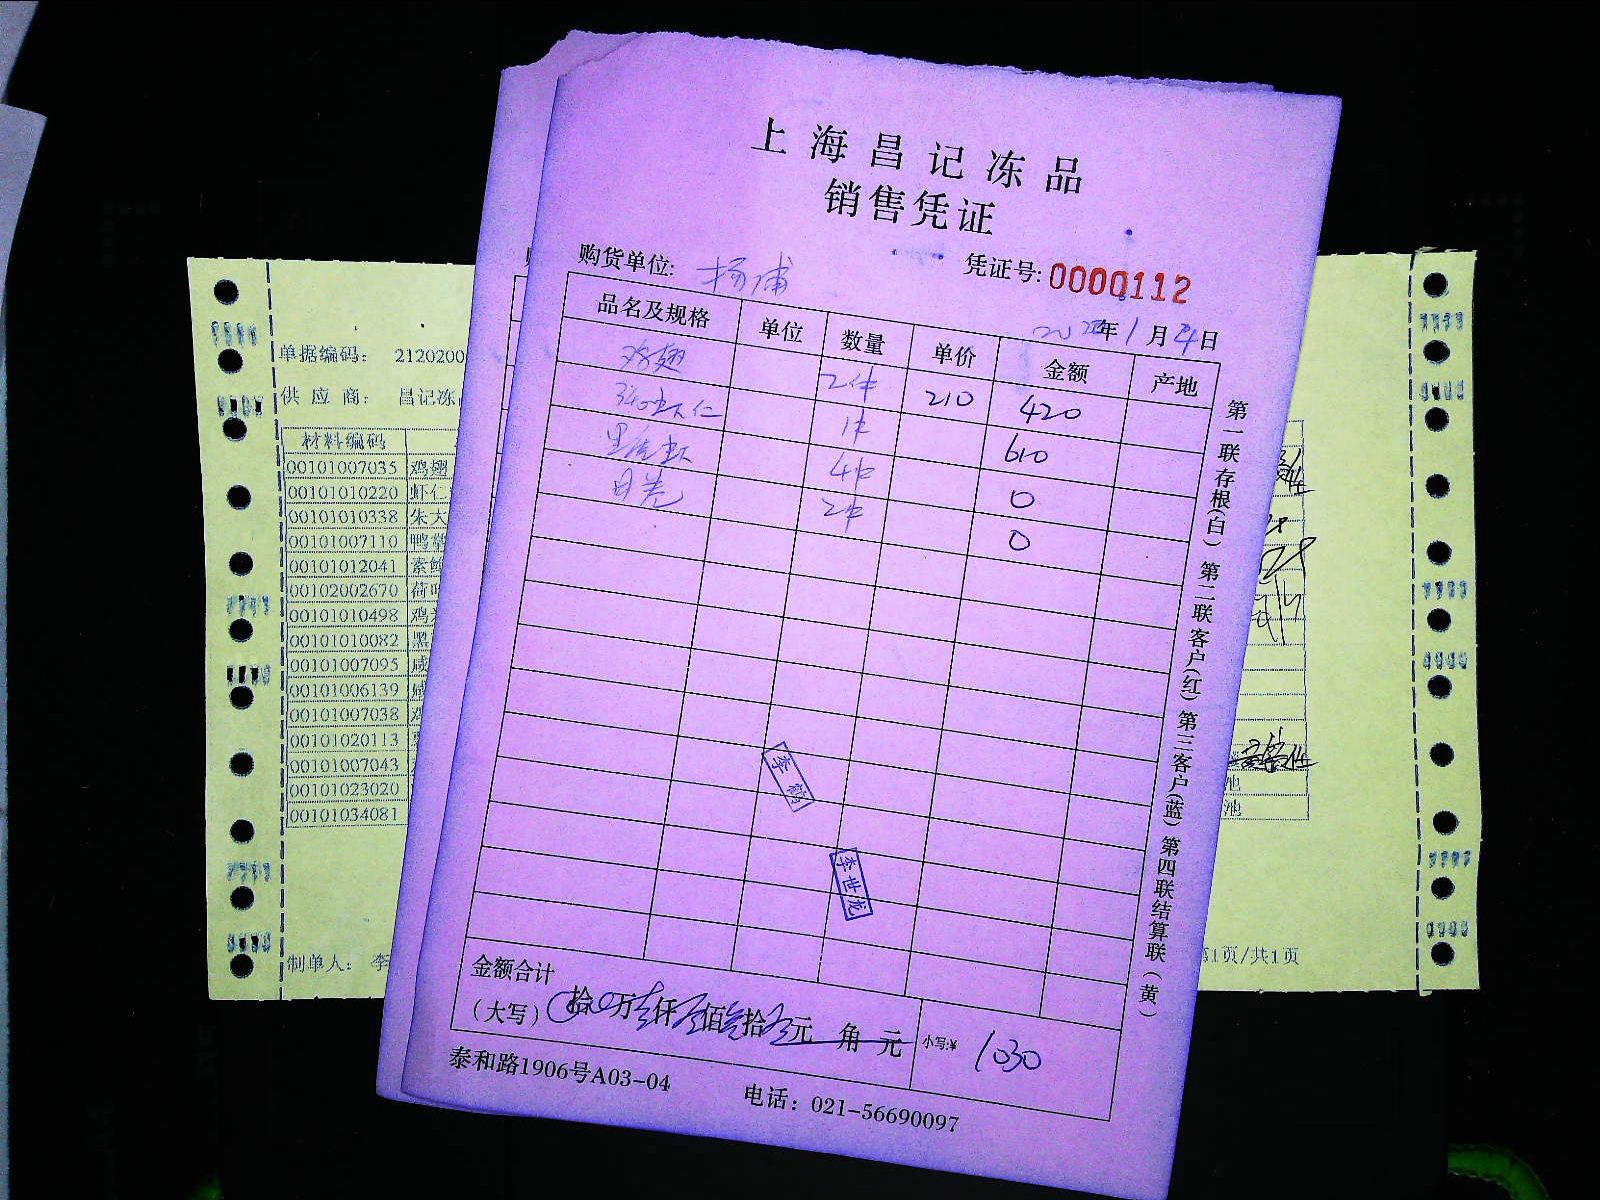 上海昌记冻品
销售凭证
购货单位: 杨浦
凭证号: 0000112
年1月4日
品名及规格 单位 数量 单价 金额 产地
鸡翅 2件 210 420
虾仁 1件 610
4件 0
2件 0
李
李世龙
金额合计
(大写) 拾 万 仟 佰 拾 元 角 元
小写:¥ 1030
泰和路1906号A03-04 电话: 021-56690097
第一联存根(白) 第二联客户(红) 第三客户(蓝) 第四联结算联(黄)
单据编码: 2120200
供应商: 昌记冻
材料编码
00101007035 鸡翅
00101010220 虾仁
00101010338 朱大
00101007110 鸭掌
00101012041 素鲍
00102002670 荷叶
00101010498 鸡
00101010082 黑
00101007095 咸
00101006139 咸
00101007038 鸡
00101020113
00101007043
00101023020 池
00101034081 池
制单人: 李
第1页/共1页